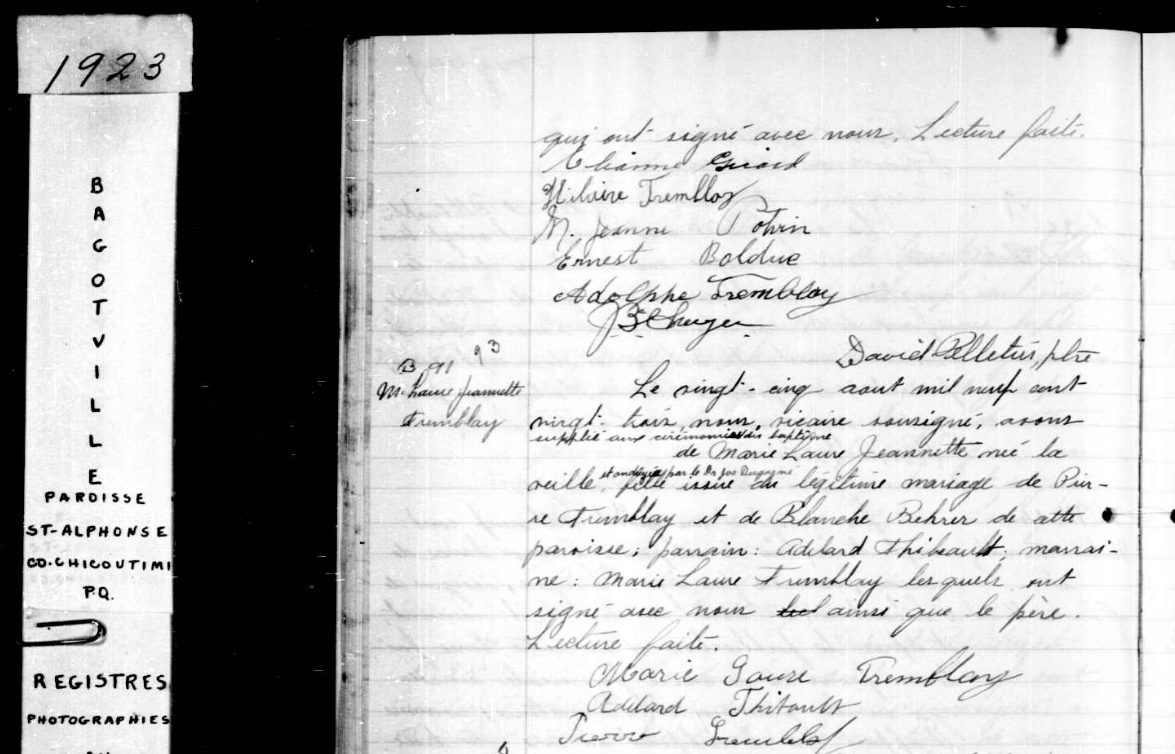 1923
BAGOTVILLE
PAROISSE
ST-ALPHONSE
CO. CHICOUTIMI
P.Q.
REGISTRES
PHOTOGRAPHIES
qui ont signé avec nous. Lecture faite.
Girard
Hilaire Tremblay
M. Jeanne Potvin
Ernest Bolduc
Adolphe Tremblay
David Pelletier, ptre
B. 91 93
M. Laure Jeannette
Tremblay
Le vingt-cinq aout mil neuf cent
vingt-trois, nous, vicaire sousigné, avons
supplié aux cérémonies du baptême
de Marie Laure Jeannette née la
et ondoyée par le Dr Jos
veille, fille issue du légitime mariage de Pier-
re Tremblay et de Blanche Behrer de cette
paroisse; parrain: Adelard Thibeault; marrai-
ne: Marie Laure Tremblay lesquels ont
signé avec nous ainsi que le père.
Lecture faite.
Marie Laure Tremblay
Adelard Thibault
Pierre Tremblay